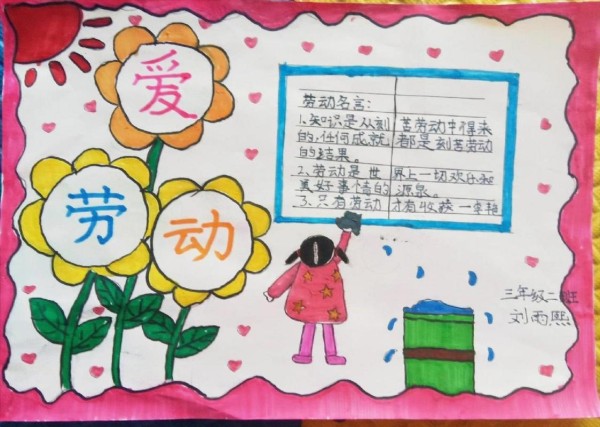 爱
劳
动
劳动名言:
1.知识是从刻苦劳动中得来
的,任何成就都是刻苦劳动
的结果。
2、劳动是世界上一切欢乐和
美好事情的源泉。
3、只有劳动才有收获一
三年级二班
刘雨熙